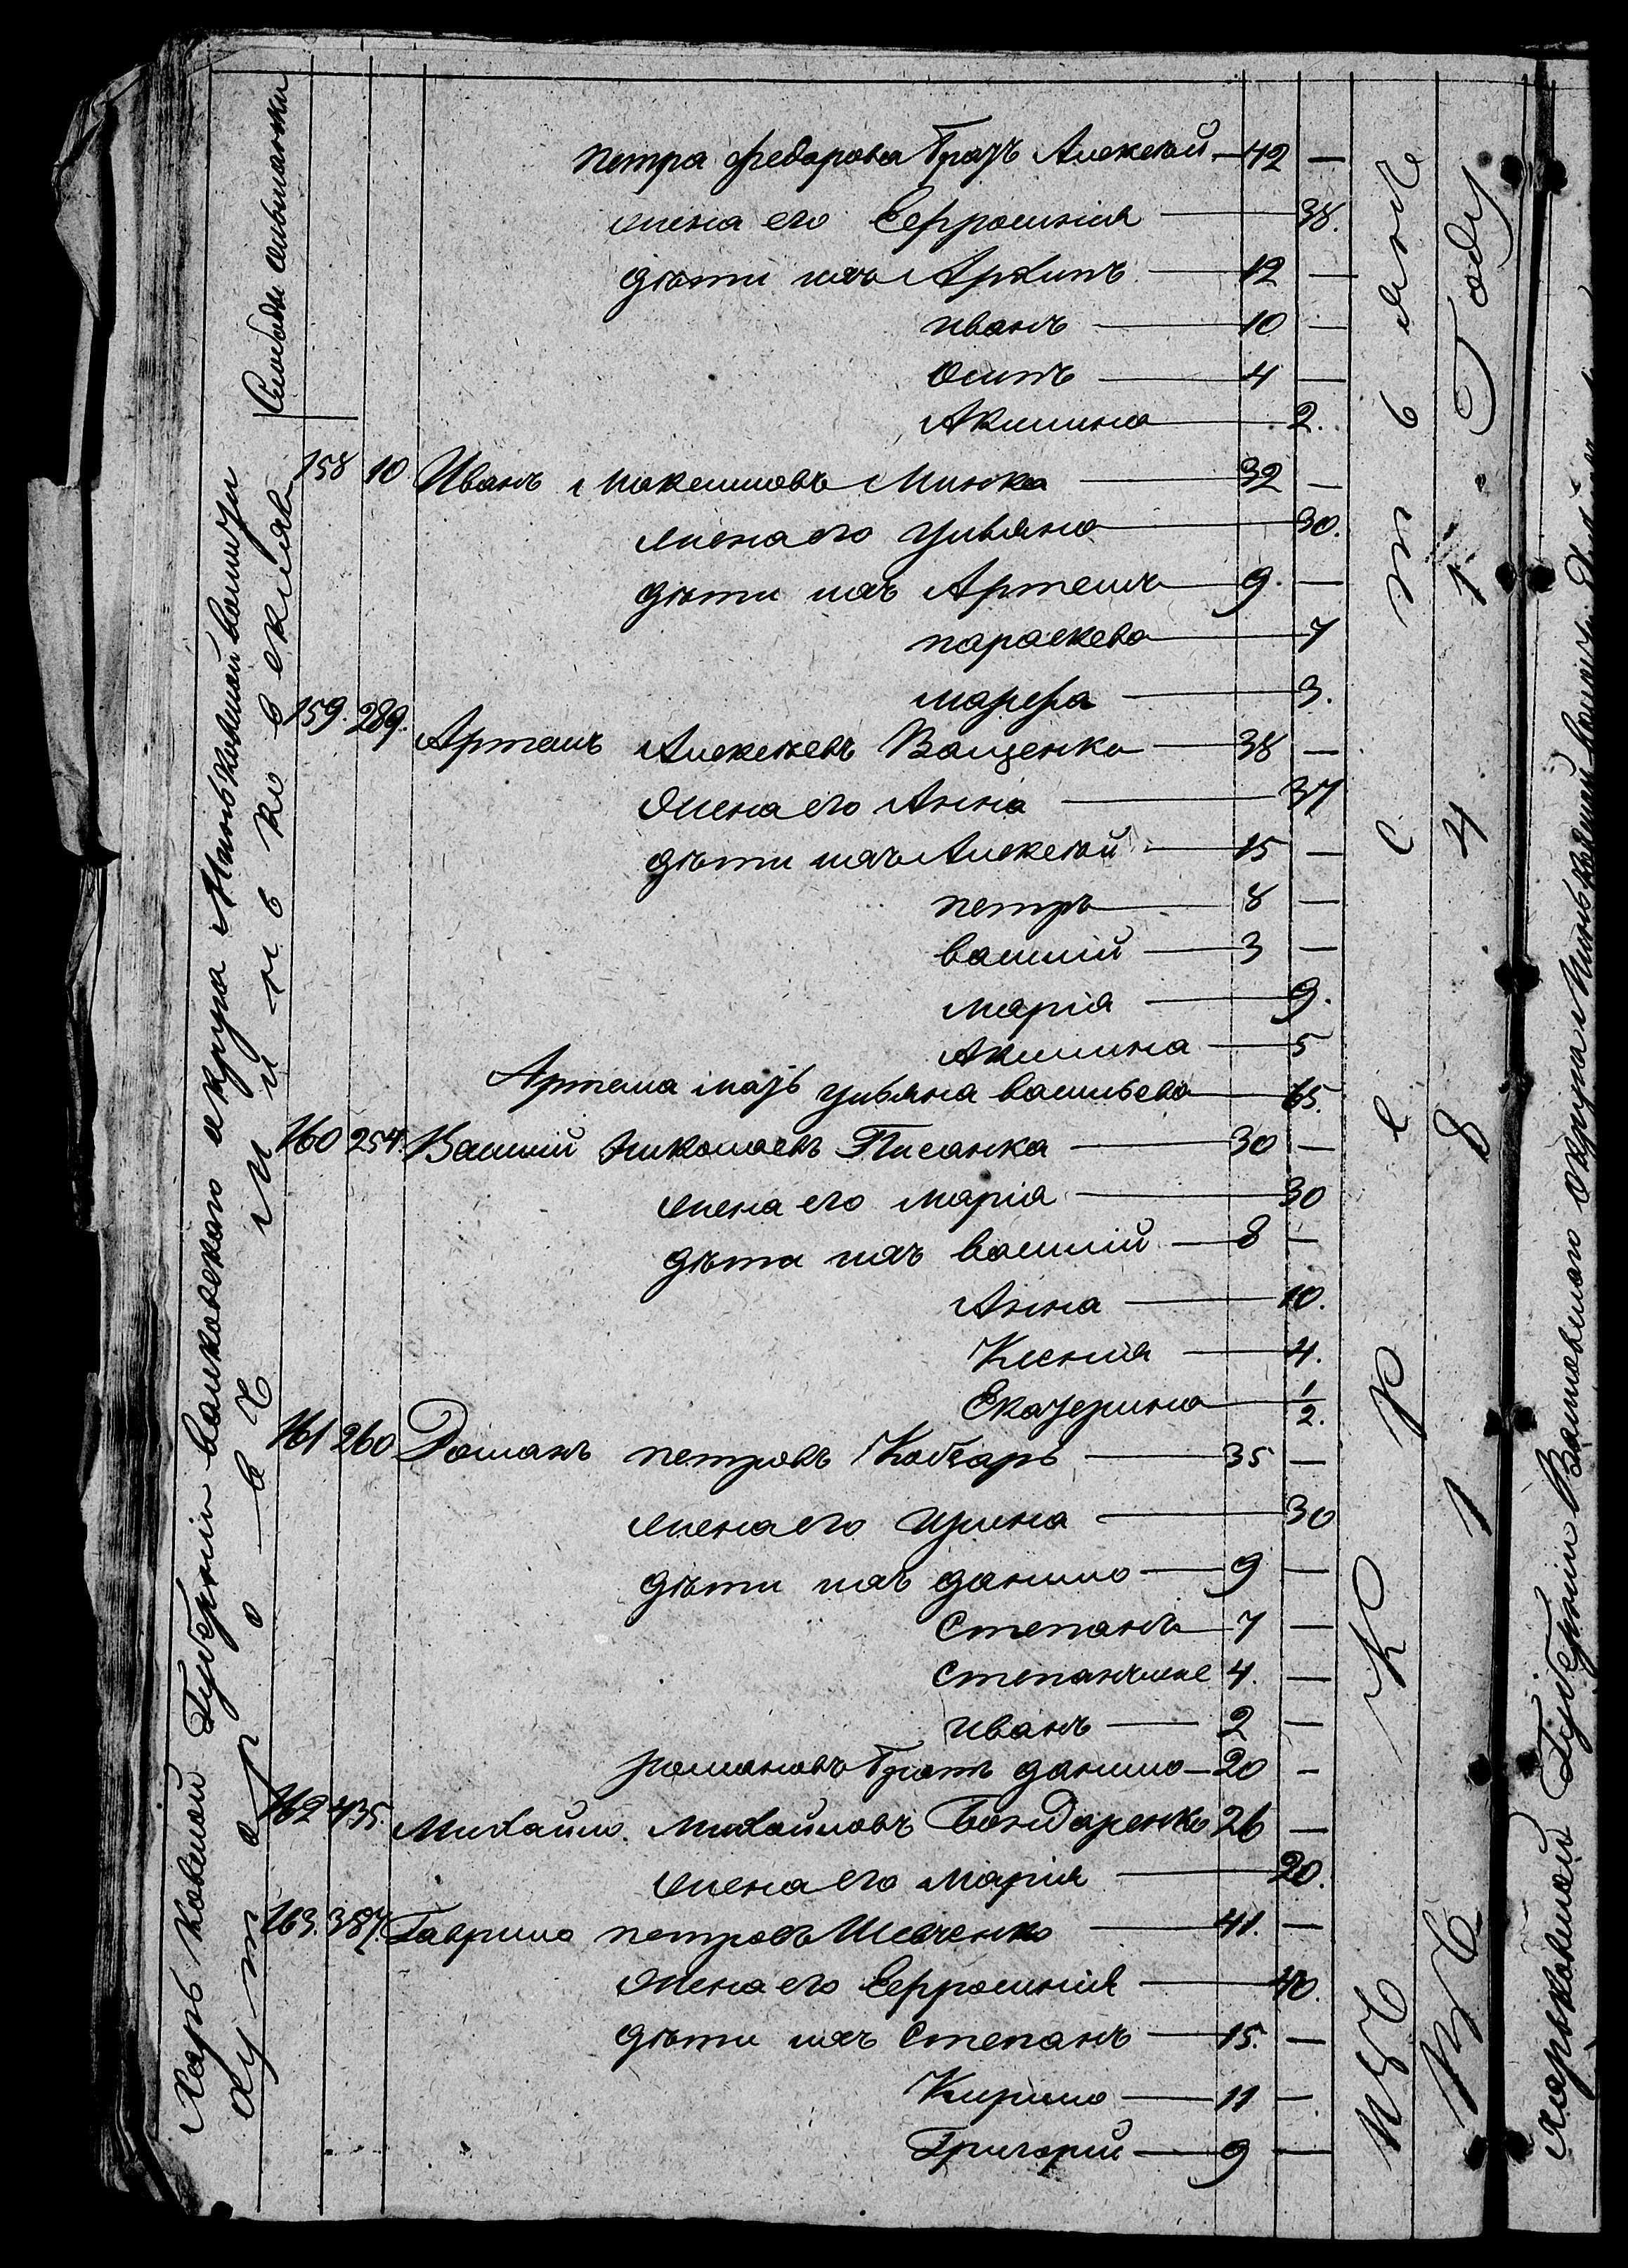 Харьковской Губерніи валковскаго округа Миньковской волости
хуторовъ миньковскихъ
Слободы ольшанки
петра федорова братъ Алексей — 42 —
жена его Ефросинія — 38.
дѣти ихъ Архипъ — 12 —
иванъ — 10 —
Осипъ — 4 —
Акилина — 2.
158 10 Иванъ Максимовъ Минка — 32 —
жена его ульяна — 30.
дѣти ихъ Артемъ — 9. —
параскева — 7
марфа — 3.
159. 289. Артемъ Алексѣевъ Ващенко — 38 —
Жена его Анна — 37
дѣти ихъ Алексей — 15 —
петръ — 8 —
василій — 3 —
марія — 9.
Акилина — 5
Артема мать ульяна васильева — 65.
160 254. Василий Николаевъ Писанка — 30 —
жена его марія — 30
дѣти ихъ василій — 8 —
Анна — 10.
Ксенія — 4.
Екатерина — 1/2.
161 260 Романъ петровъ Кобзарь — 35 —
жена его ирина — 30
дѣти ихъ данило — 9 —
Степанъ — 7 —
Степанъ же 4. —
иванъ — 2 —
романовъ братъ данило — 20 —
162 435. Михайло Михайловъ Бондаренко 26 —
жена его Марія — 20.
163. 387. Гаврило петровъ Шевченко — 41. —
Жена его Ефросинія — 40.
дѣти ихъ Степанъ — 15. —
Кирило — 11 —
Григорій — 9 —
изъ Крестянъ
Въ 1841 Году
Харьковской Губерніи Валковского округа Миньковской волости